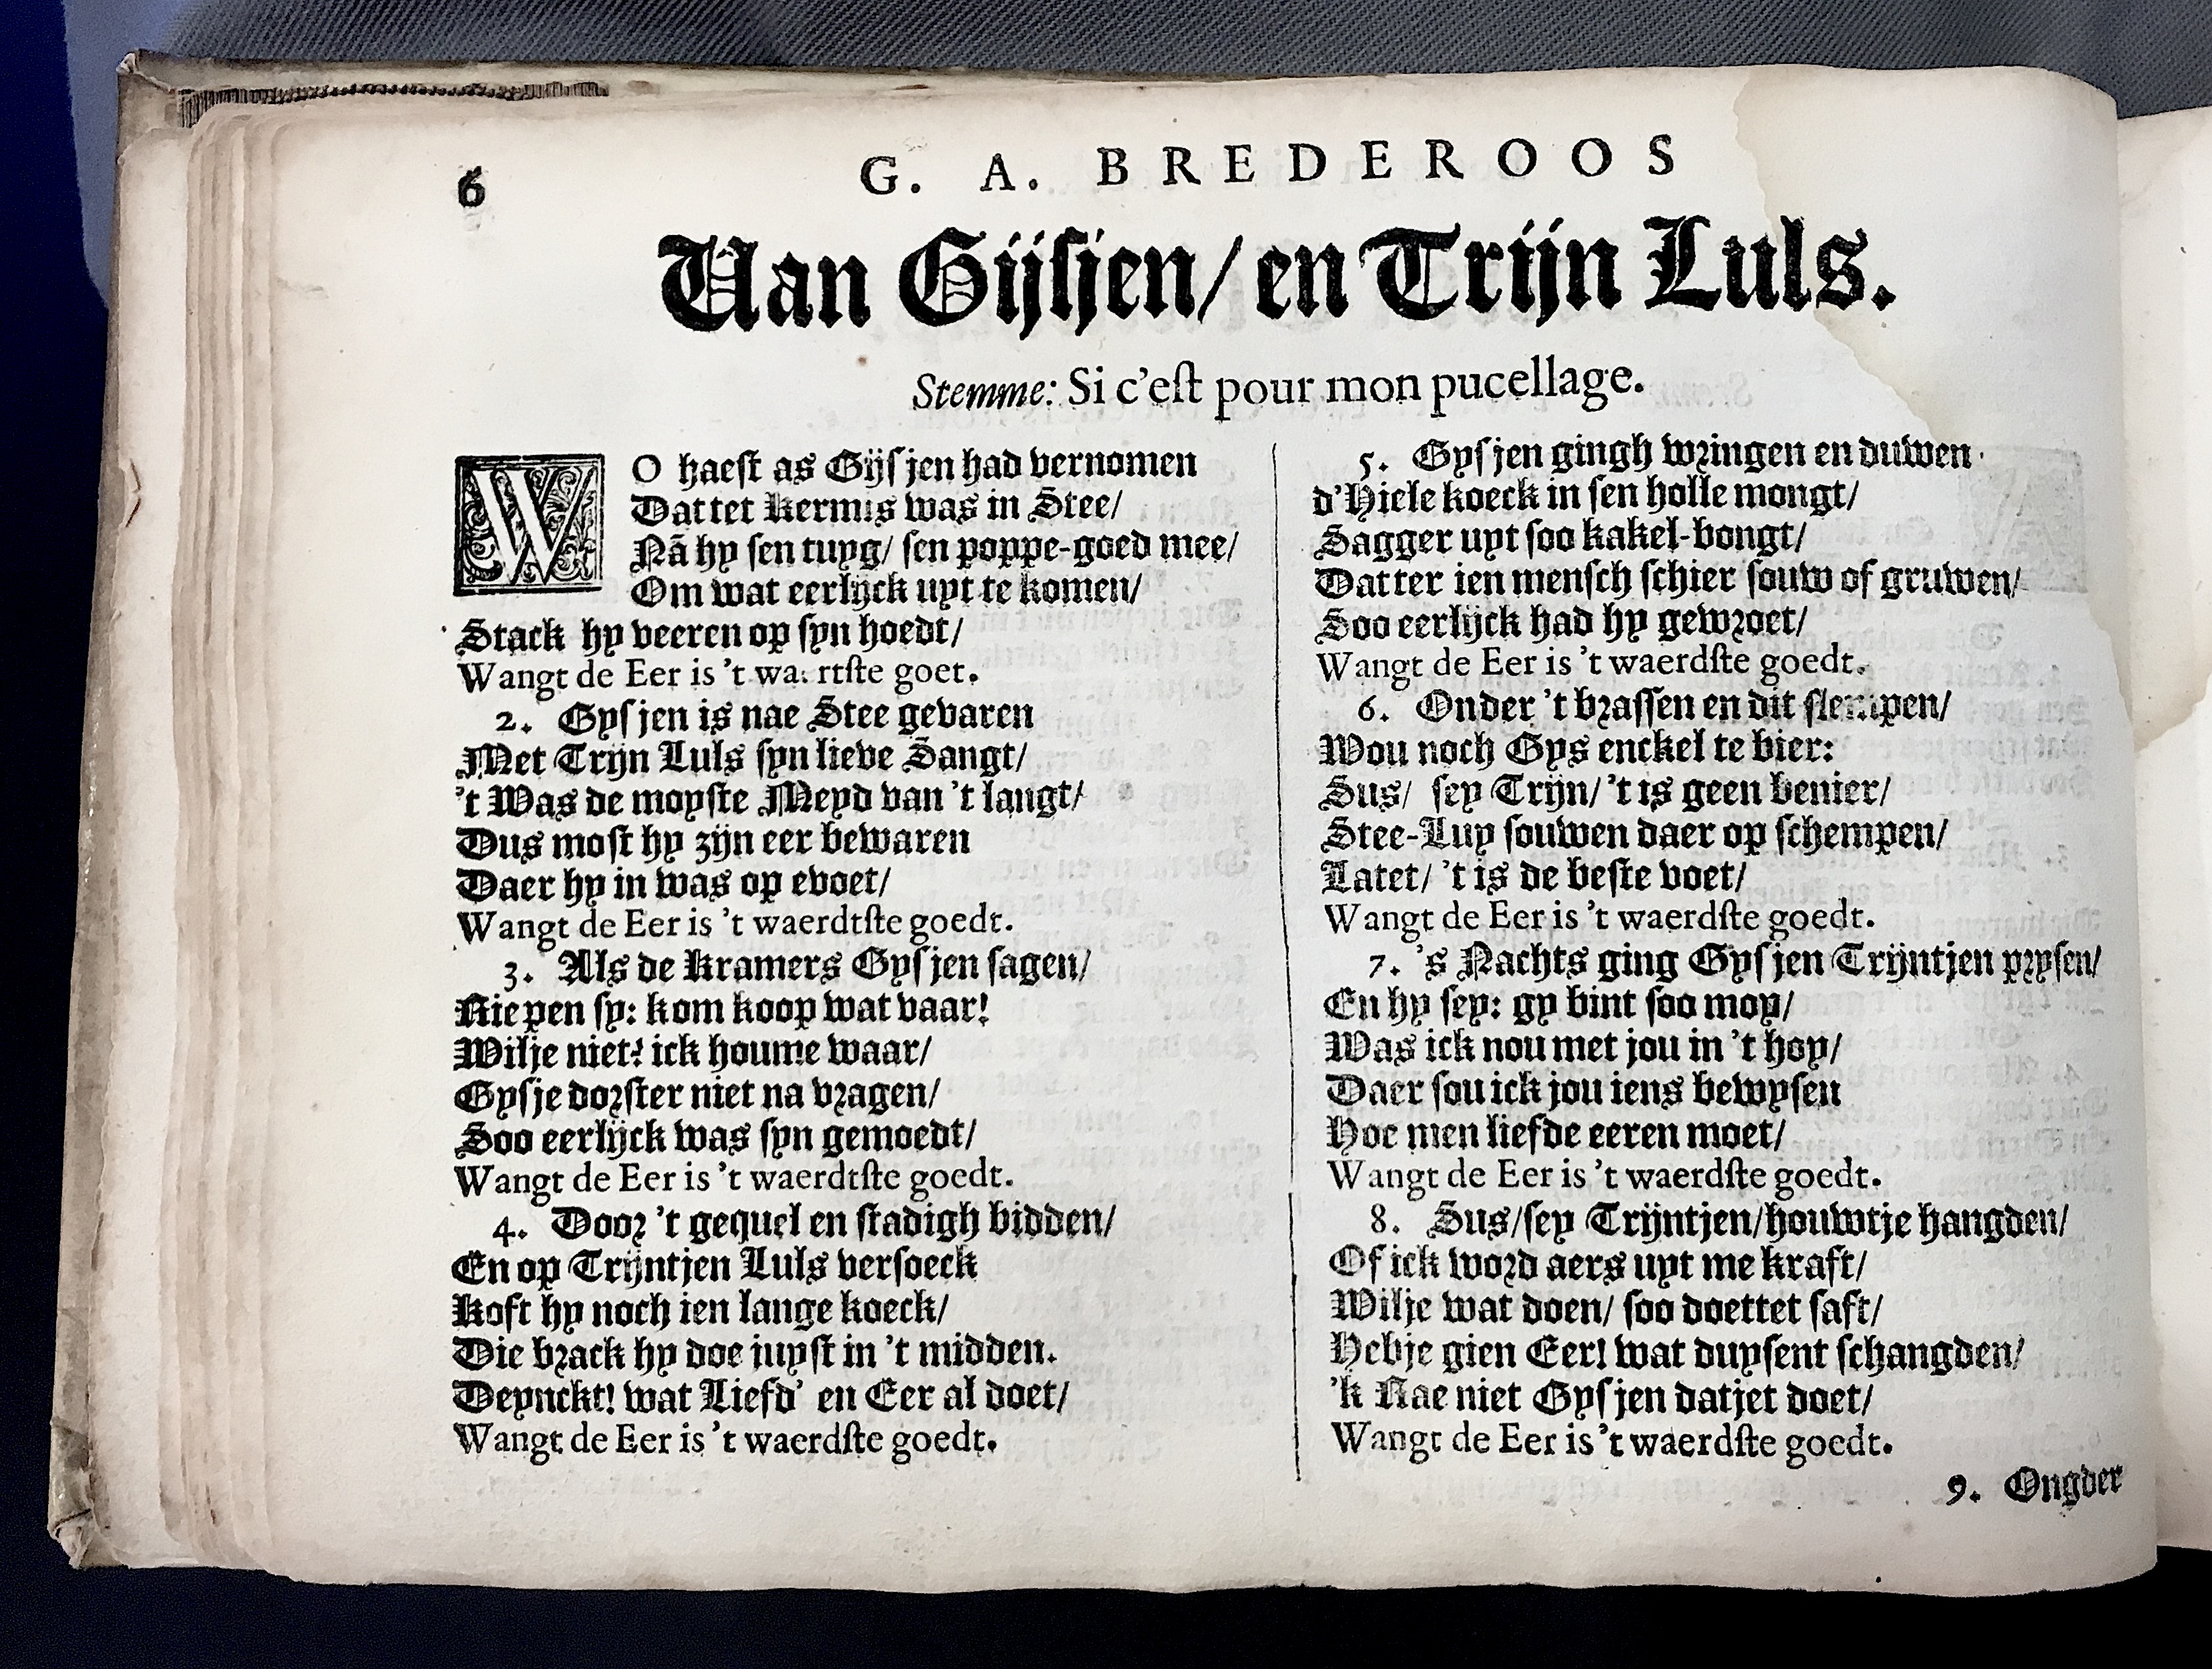 6
G. A. BREDEROOS
Van Gijsjen/ en Trijn Luls.
Stemme: Si c'est pour mon pucellage.
WO haest as Gijsjen had vernomen
Dattet kermis was in Stee/
Nã hy sen tuyg/ sen poppe-goed mee/
Om wat eerlijck uyt te komen/
Stack hy veeren op syn hoedt/
Wangt de Eer is 't wa. rtste goet.
2. Gysjen is nae Stee gevaren
Met Trijn Luls syn lieve Sangt/
't Was de moyste Meyd van 't langt/
Dus most hy zijn eer bewaren
Daer hy in was op evoet/
Wangt de Eer is 't waerdtste goedt.
3. Als de Kramers Gysjen sagen/
Riepen sy: kom koop wat vaar!
Wilje niet? ick houme waar/
Gysje dorster niet na vragen/
Soo eerlijck was syn gemoedt/
Wangt de Eer is 't waerdtste goedt.
4. Door 't gequel en stadigh bidden/
En op Trijntjen Luls versoeck
Koft hy noch ien lange koeck/
Die brack hy doe juyst in 't midden.
Deynckt! wat Liefd' en Eer al doet/
Wangt de Eer is 't waerdste goedt.
5. Gysjen gingh wringen en duwen
d'Hiele koeck in sen holle mongt/
Sagger uyt soo kakel-bongt/
Datter ien mensch schier souw of gruwen/
Soo eerlijck had hy gewroet/
Wangt de Eer is 't waerdste goedt.
6. Onder 't brassen en dit slempen/
Wou noch Gys enckel te bier:
Sus/ sey Trijn/ 't is geen benier/
Stee-Luy souwen daer op schempen/
Latet/ 't is de beste voet/
Wangt de Eer is 't waerdste goedt.
7. 's Nachts ging Gysjen Trijntjen prysen/
En hy sey: gy bint soo moy/
Was ick nou met jou in 't hoy/
Daer sou ick jou iens bewysen
Hoe men liefde eeren moet/
Wangt de Eer is 't waerdste goedt.
8. Sus/sey Trijntjen/houwtje hangden/
Of ick word aers uyt me kraft/
Wilje wat doen/ soo doettet saft/
Hebje gien Eer! wat duysent schangden/
'k Rae niet Gysjen datjet doet/
Wangt de Eer is 't waerdste goedt.
9. Ongder